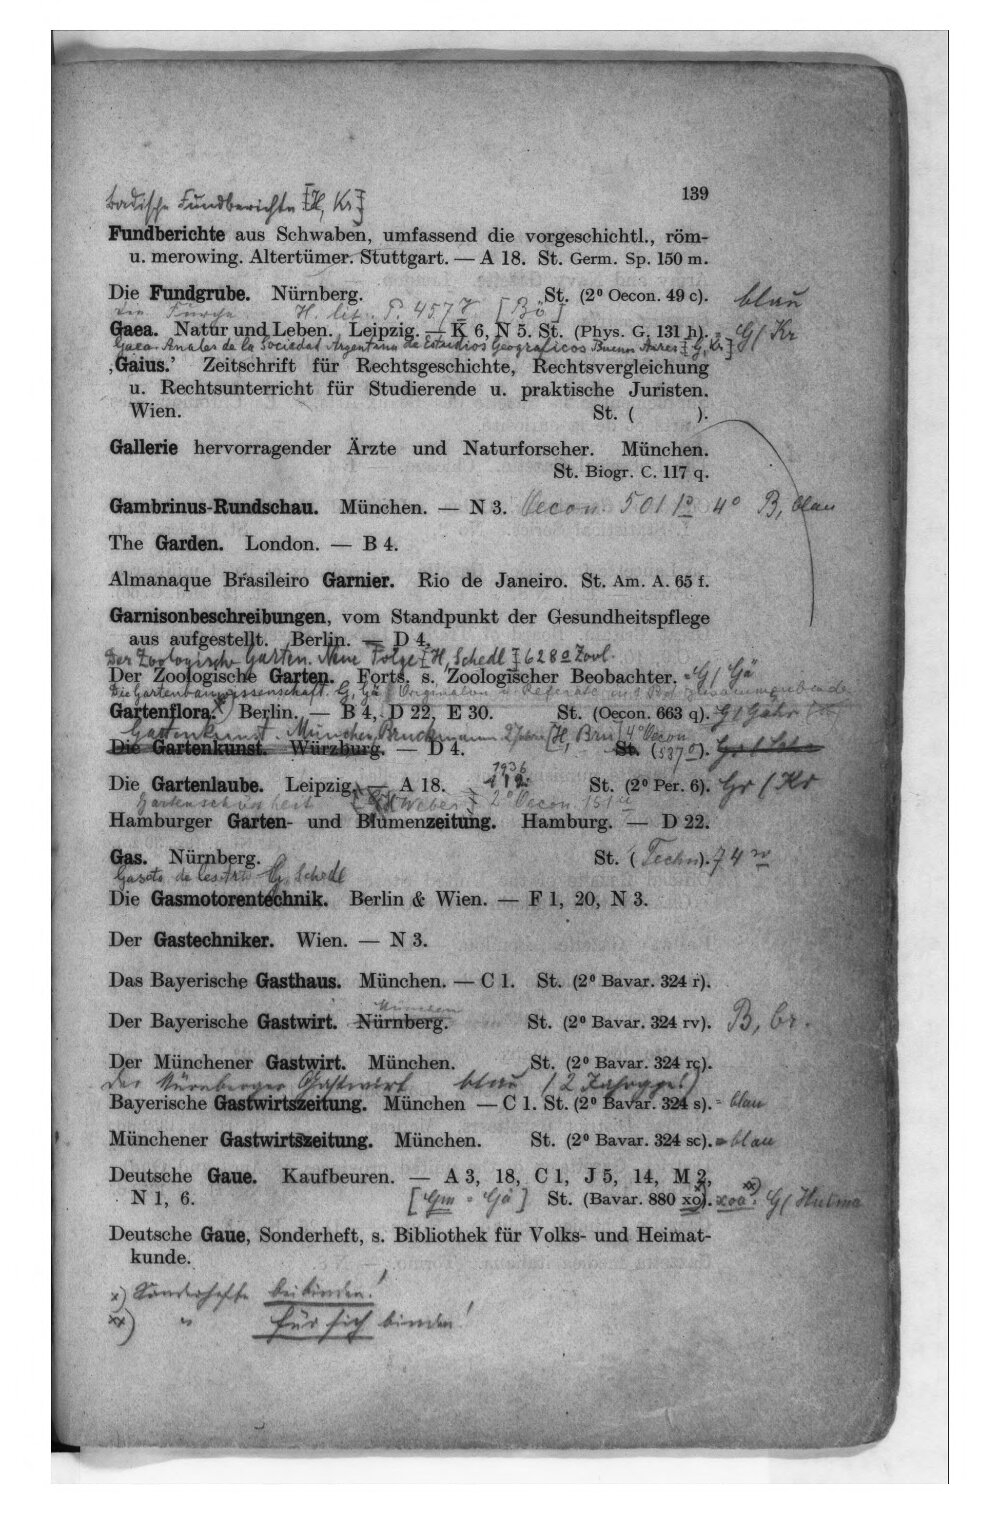 139
Badische Fundberichte [H, Kr]
Fundberichte aus Schwaben, umfassend die vorgeschichtl., röm-
u. merowing. Altertümer. Stuttgart. — A 18. St. Germ. Sp. 150 m.
Die Fundgrube. Nürnberg. St. (2⁰ Oecon. 49 c). blau
Die Furche H. lit. P. 457 [Bö]
Gaea. Natur und Leben. Leipzig. — K 6, N 5. St. (Phys. G. 131 h). G/Kr
Gaea. Anales de la Sociedad Argentina de Estudios Geograficos Buenos Aires [G, Kr.]
‚Gaius.' Zeitschrift für Rechtsgeschichte, Rechtsvergleichung
u. Rechtsunterricht für Studierende u. praktische Juristen.
Wien. St. ( ).
Gallerie hervorragender Ärzte und Naturforscher. München.
St. Biogr. C. 117 q.
Gambrinus-Rundschau. München. — N 3. Oecon. 501 4⁰ B, blau
The Garden. London. — B 4.
Almanaque Brasileiro Garnier. Rio de Janeiro. St. Am. A. 65 f.
Garnisonbeschreibungen, vom Standpunkt der Gesundheitspflege
aus aufgestellt. Berlin. — D 4.
Der Zoologische Garten. Neue Folge [H, Schedl] 628 Zool.
Der Zoologische Garten. Forts. s. Zoologischer Beobachter. G/Gä
Die Gartenbauwissenschaft. G, Gä
Gartenflora. Berlin. — B 4, D 22, E 30. St. (Oecon. 663 q).
Gartenkunst. München, Bruckmann [H, Bru] 4⁰ Oecon
Die Gartenkunst. Würzburg. — D 4. St. (537).
1936
Die Gartenlaube. Leipzig. — A 18. St. (2⁰ Per. 6). Gr/Kr
Gartenschönheit [H Weber] 2⁰ Oecon. 151
Hamburger Garten- und Blumenzeitung. Hamburg. — D 22.
Gas. Nürnberg. St. (Techn). 74
G, Schedl
Die Gasmotorentechnik. Berlin & Wien. — F 1, 20, N 3.
Der Gastechniker. Wien. — N 3.
Das Bayerische Gasthaus. München. — C 1. St. (2⁰ Bavar. 324 r).
München
Der Bayerische Gastwirt. Nürnberg. St. (2⁰ Bavar. 324 rv). B, br.
Der Münchener Gastwirt. München. St. (2⁰ Bavar. 324 rc).
Der Nürnberger Gastwirt blau
Bayerische Gastwirtszeitung. München — C 1. St. (2⁰ Bavar. 324 s). = blau
Münchener Gastwirtszeitung. München. St. (2⁰ Bavar. 324 sc). = blau
Deutsche Gaue. Kaufbeuren. — A 3, 18, C 1, J 5, 14, M 2,
N 1, 6. St. (Bavar. 880 xo).
Deutsche Gaue, Sonderheft, s. Bibliothek für Volks- und Heimat-
kunde.
x) Sonderhefte beibinden!
xx) " für sich binden!